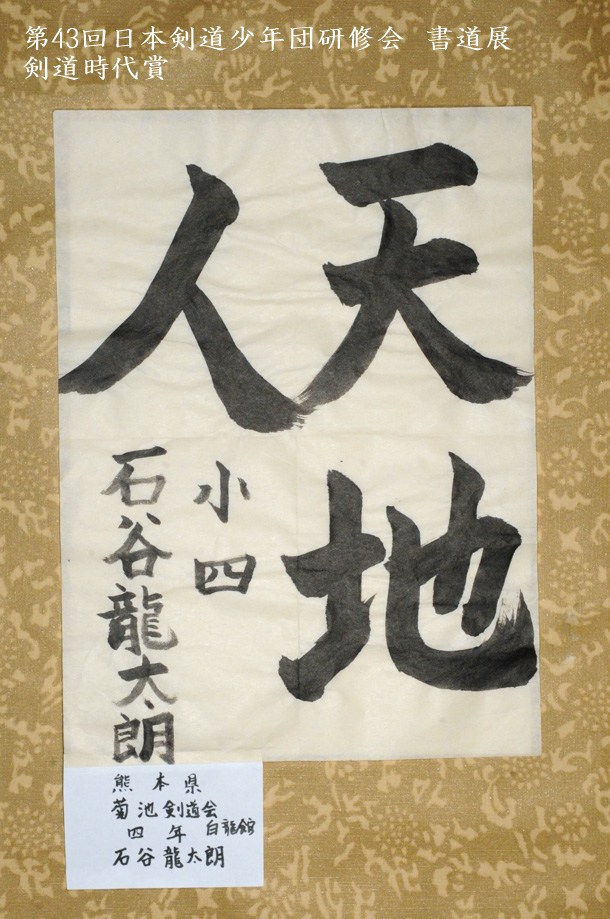 第43回日本剣道少年団研修会 書道展
剣道時代賞
天地
人
小四
石谷龍太朗
熊本県
菊池剣道会
四年 白龍館
石谷龍太朗